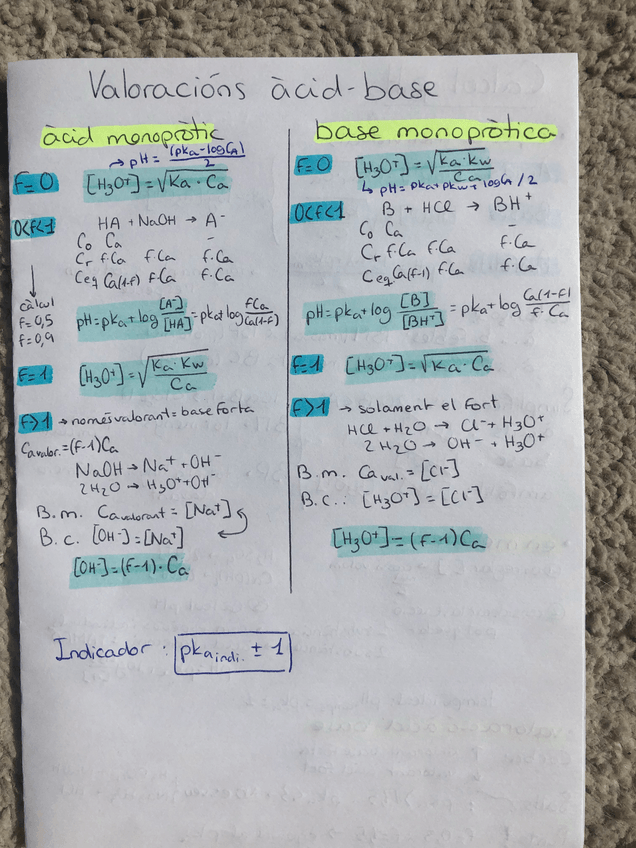 Valoracións àcid-base
àcid monopròtic
→ pH = (pKa - logCa) / 2
F=0 [H3O+] = √Ka · Ca
0<f<1 HA + NaOH → A-
Co Ca -
Cr f·Ca f·Ca f·Ca
Ceq Ca(1-f) f·Ca f·Ca
càlcul
f=0,5
f=0,9
pH = pKa + log [A-]/[HA] = pKa + log f·Ca/Ca(1-f)
F=1 [H3O+] = √Ka · Kw / Ca
F>1 → només valorant = base forta
Ca valor. = (f-1)Ca
NaOH → Na+ + OH-
2H2O → H3O+ + OH-
B.m. Cavalorant = [Na+]
B.c. [OH-] = [Na+]
[OH-] = (f-1) · Ca
base monopròtica
F=0 [H3O+] = √Ka · Kw / Ca
↳ pH = pKa + pKw + logCa / 2
0<f<1 B + HCl → BH+
Co Ca -
Cr f·Ca f·Ca f·Ca
Ceq Ca(f-1) f·Ca f·Ca
pH = pKa + log [B]/[BH+] = pKa + log Ca(1-f)/f·Ca
F=1 [H3O+] = √Ka · Ca
F>1 → solament el fort
HCl + H2O → Cl- + H3O+
2H2O → OH- + H3O+
B.m. Caval. = [Cl-]
B.c.: [H3O+] = [Cl-]
[H3O+] = (f-1)Ca
Indicador : pKa indi. ± 1